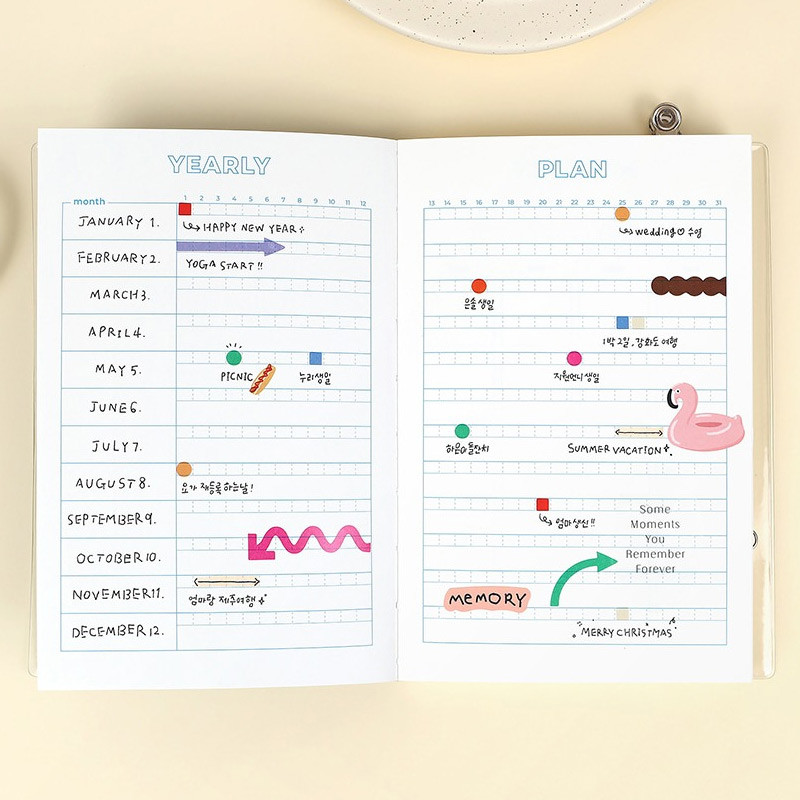 YEARLY PLAN
month 1 2 3 4 5 6 7 8 9 10 11 12
13 14 15 16 17 18 19 20 21 22 23 24 25 26 27 28 29 30 31
JANUARY 1.
HAPPY NEW YEAR
wedding♡ 수영
FEBRUARY 2.
YOGA START !!
MARCH 3.
은솔 생일
APRIL 4.
1박 2일, 강화도 여행
MAY 5.
PICNIC
누리생일
지원언니 생일
JUNE 6.
JULY 7.
하은이 돌잔치
SUMMER VACATION
AUGUST 8.
요가 재등록 하는날!
SEPTEMBER 9.
엄마생신!!
Some
Moments
You
Remember
Forever
OCTOBER 10.
NOVEMBER 11.
엄마랑 제주여행
MEMORY
DECEMBER 12.
MERRY CHRISTMAS